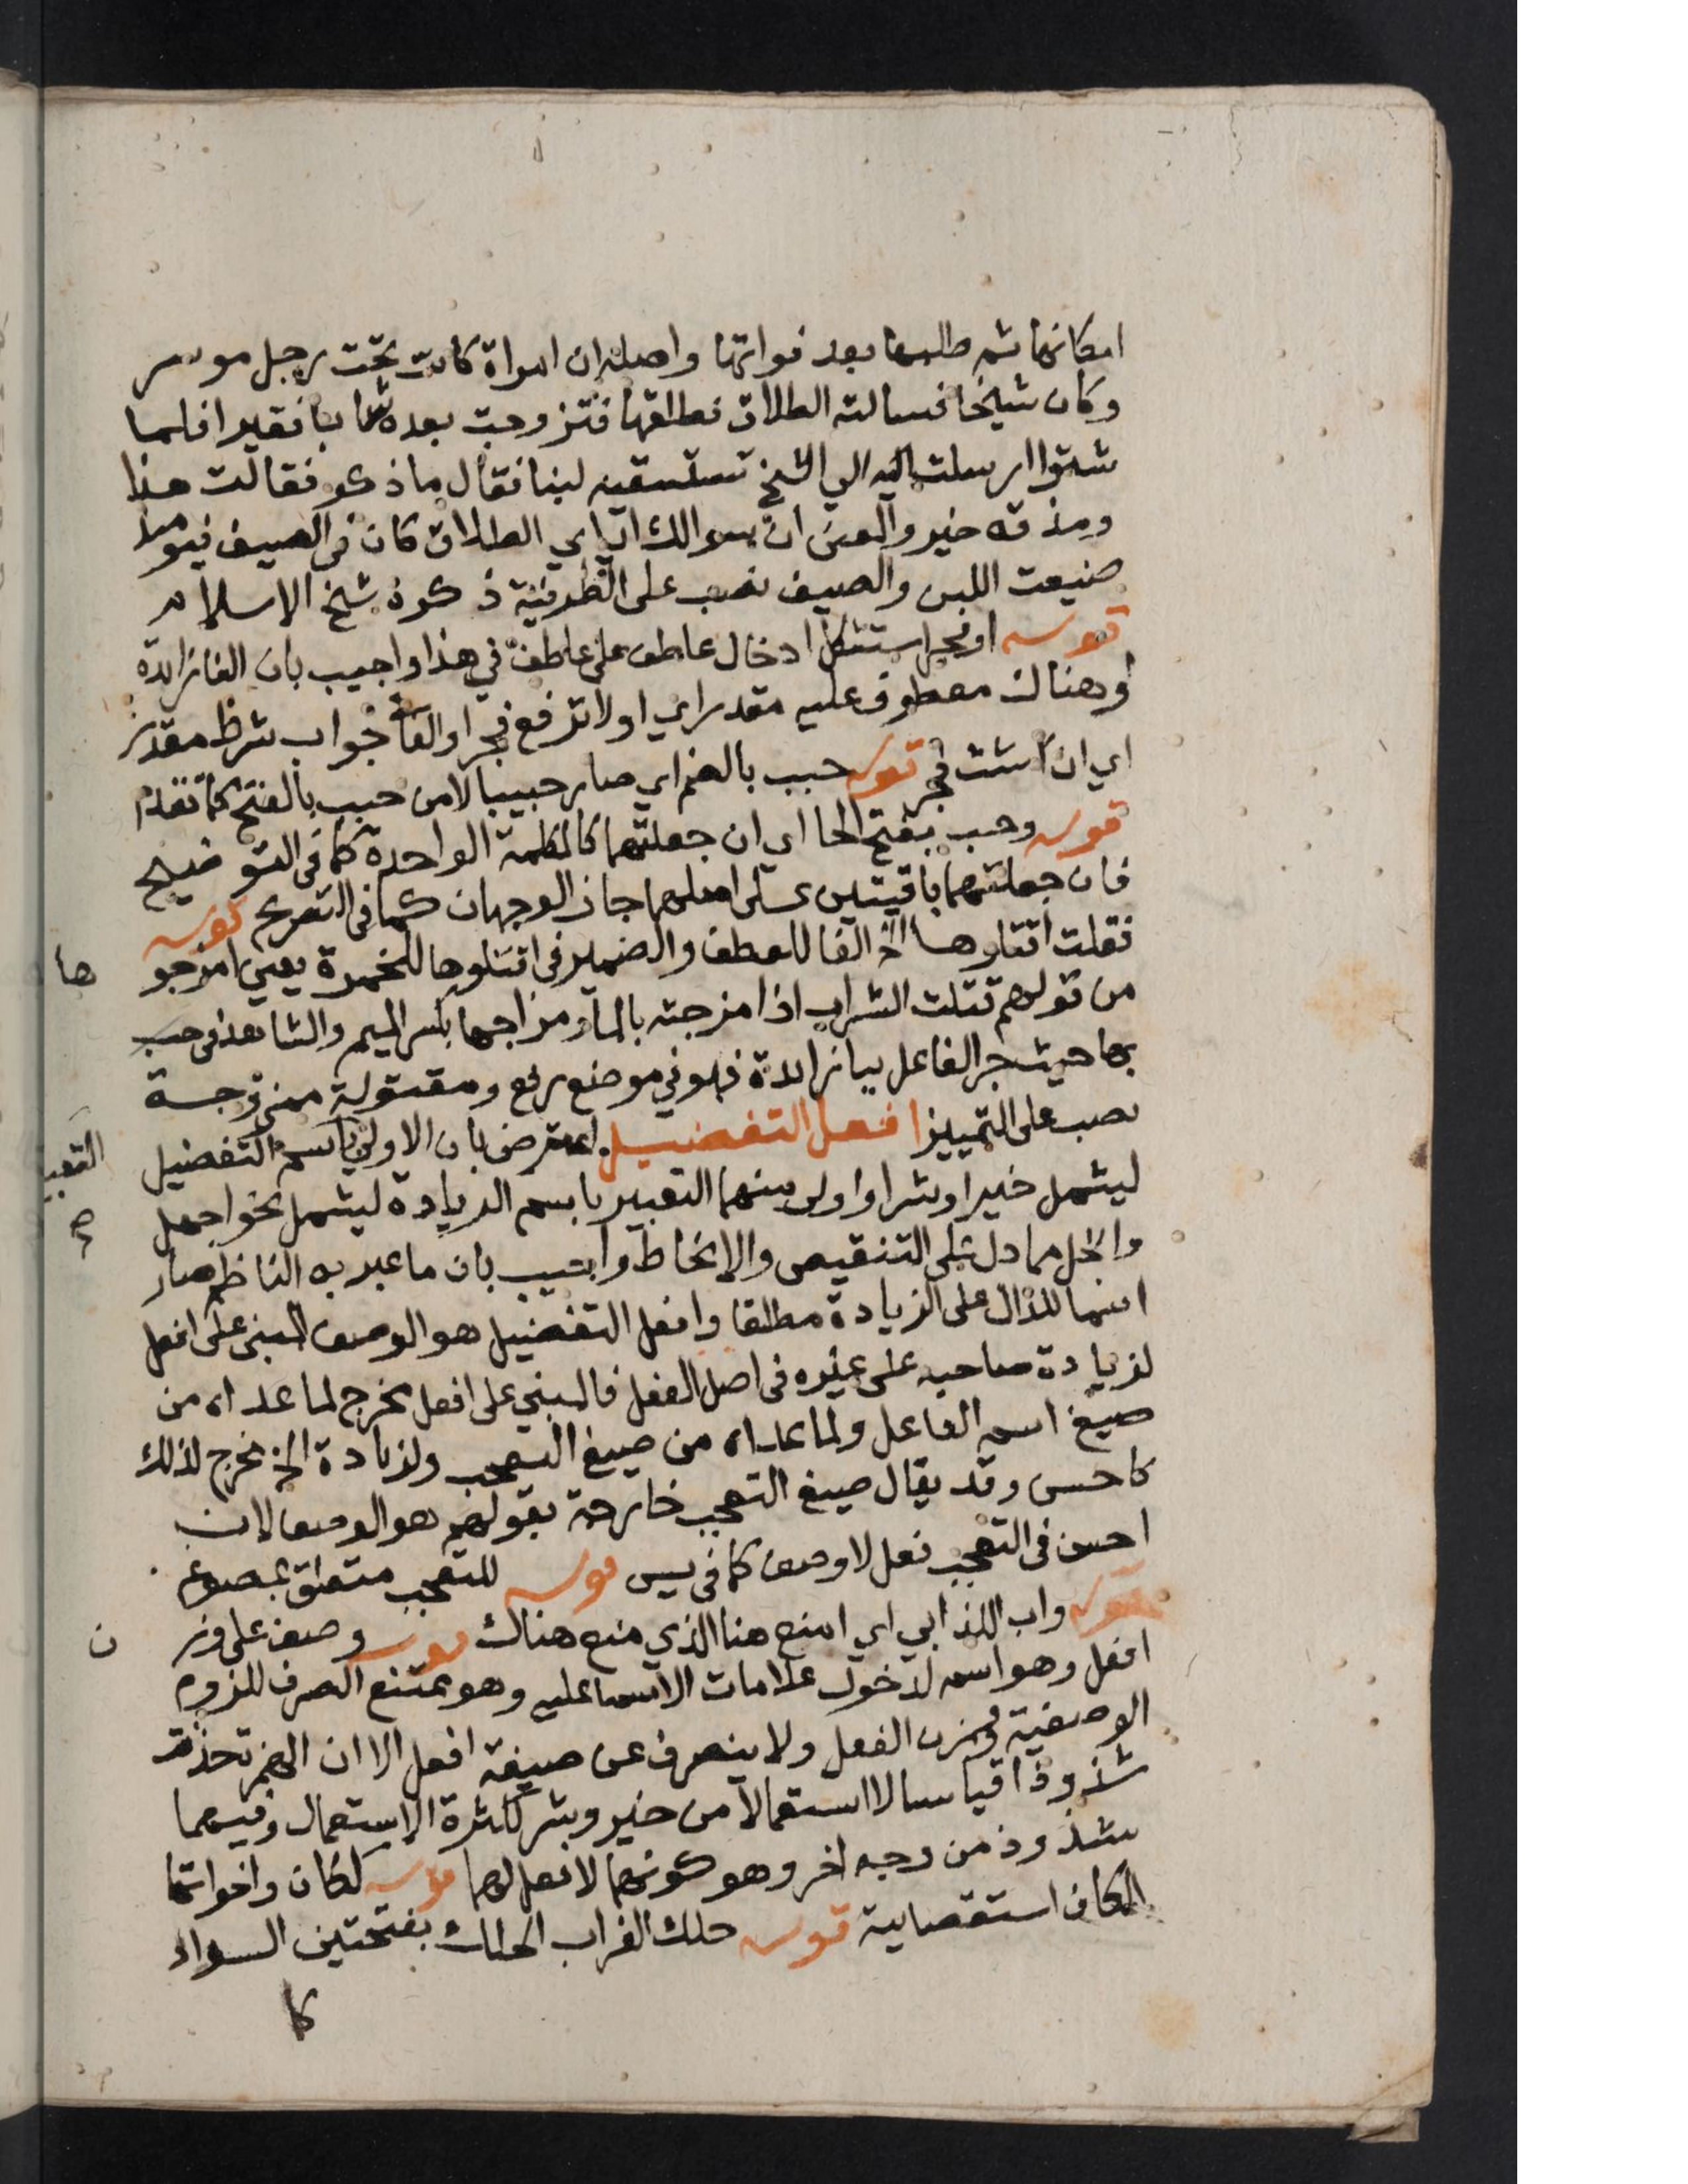 امكانها ثم طلبها بعد فواتها واصله ان امراة كانت تحت رجل موسر
وكان شيخا فسالته الطلاق فطلقها فتزوجت بعده شابا فقيرا فلما
شتوا ارسلت اليه الي الشيخ تستسقيه لبنا فقال ما ذكر فقالت هذا
ومذقه خير والمعنى ان سوالك اياي الطلاق كان في الصيف فيومئذ
ضيعت اللبن والصيف نصب على الظرفية ذكره شيخ الاسلام
قوله او فجر استشكل ادخال عاطف على عاطف في هذا واجيب بان الفا زائدة
او هناك معطوف عليه مقدر اي اولا ترفع فجر او الفا جواب شرط مقدر
اي ان شئت فجر قوله حبب بالضم اي صار حبيبا لا من حبب بالفتح كما تقدم
قوله وحب بفتح الحا اي ان جعلتهما كالكلمة الواحدة كما في التوضيح
فان جعلتهما باقيتين على اصلهما جاز الوجهان كما في التصريح قوله
فقلت اقتلوها الخ الفا للعطف والضمير في اقتلوها للخمرة يعني امزجو
ها
من قولهم قتلت الشراب اذا مزجته بالماء مزاجها بكسر الميم والشاهد في حب
بها حيث جر الفاعل ببا زائدة فهو في موضع رفع ومقتولة ممزوجة
نصب على التمييز افعل التفضيل اعترض بان الاولى باسم التفضيل
التعبير
ليشمل خيرا وشرا واولى منهما التعبير باسم الزيادة ليشمل نحو اجهل
وابخل مما دل على التنقيص والانحطاط واجيب بان ما عبر به الناظم صار
اسما للدال على الزيادة مطلقا وافعل التفضيل هو الوصف المبني على افعل
لزيادة صاحبه على غيره في اصل الفعل فالمبني على افعل مخرج لما عداه من
صيغ اسم الفاعل ولما عداه من صيغ التعجب ولزيادة الخ مخرج لذلك
كاحسن وقد يقال صيغ التعجب خارجة بقولهم هو الوصف لان
احسن في التعجب فعل لا وصف كما في يس قوله للتعجب متعلق بمصوغ
قوله واب اللذ ابي اي امنع هنا الذي منع هناك قوله وصف على وزن
افعل وهو اسم لدخول علامات الاسما عليه وهو ممتنع الصرف للزوم
الوصفية ووزن الفعل ولا ينصرف عن صيغة افعل الا ان الهمزة حذفت
شذوذا قياسا لا استعمالا من خير وشر لكثرة الاستعمال وفيهما
شذوذ من وجه اخر وهو كونهما لا فعل لهما قوله لكان واخواتها
الكاف استقصايية قوله حلك الغراب الحلك بفتحتين السواد
كا